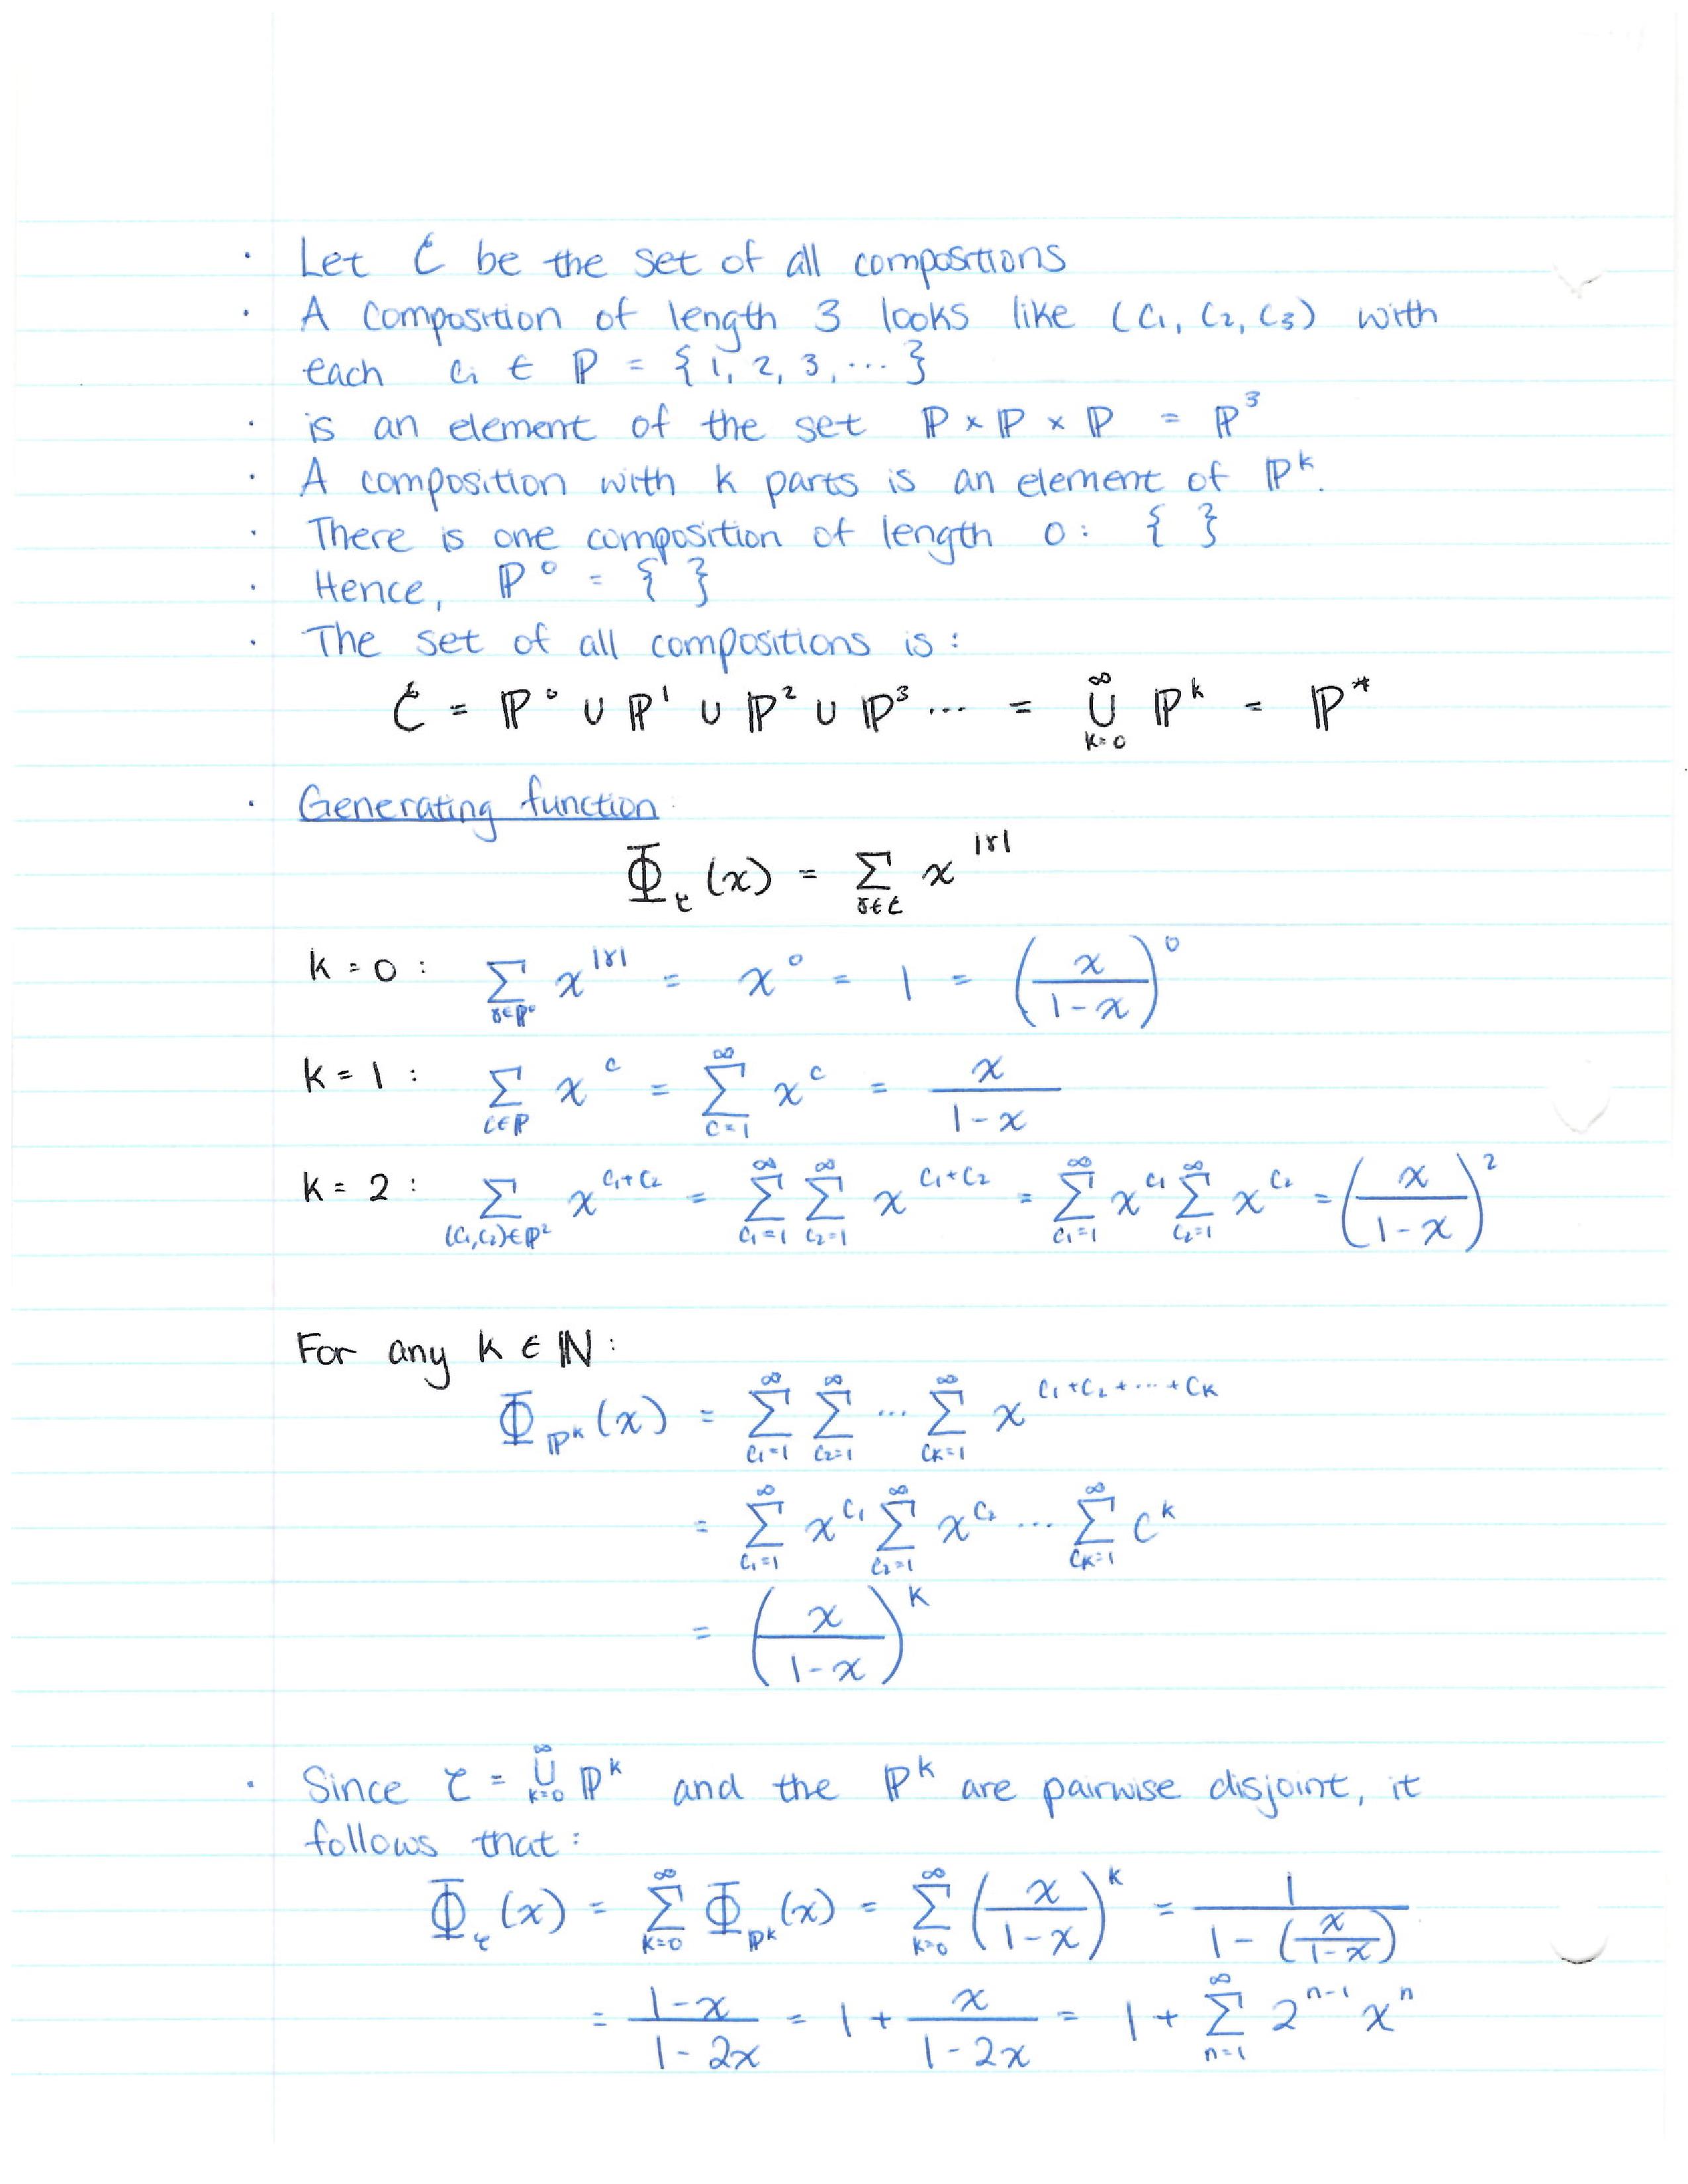 · Let C be the set of all compositions
· A composition of length 3 looks like (c₁, c₂, c₃) with
each cᵢ ∈ ℙ = {1, 2, 3, ... }
· is an element of the set ℙ × ℙ × ℙ = ℙ³
· A composition with k parts is an element of ℙᵏ.
· There is one composition of length 0: { }
· Hence, ℙ⁰ = { }
· The set of all compositions is :
C = ℙ⁰ ∪ ℙ¹ ∪ ℙ² ∪ ℙ³ ... = ∪_{k=0}^{∞} ℙᵏ = ℙ*
· Generating function:
Φ_C (x) = Σ_{γ∈C} x^{|γ|}
k = 0 : Σ_{γ∈ℙ⁰} x^{|γ|} = x⁰ = 1 = (x/(1-x))⁰
k = 1 : Σ_{c∈ℙ} x^c = Σ_{c=1}^{∞} x^c = x/(1-x)
k = 2 : Σ_{(c₁,c₂)∈ℙ²} x^{c₁+c₂} = Σ_{c₁=1}^{∞} Σ_{c₂=1}^{∞} x^{c₁+c₂} = Σ_{c₁=1}^{∞} x^{c₁} Σ_{c₂=1}^{∞} x^{c₂} = (x/(1-x))²
For any k ∈ ℕ :
Φ_{ℙᵏ} (x) = Σ_{c₁=1}^{∞} Σ_{c₂=1}^{∞} ... Σ_{c_k=1}^{∞} x^{c₁+c₂+...+c_k}
= Σ_{c₁=1}^{∞} x^{c₁} Σ_{c₂=1}^{∞} x^{c₂} ... Σ_{c_k=1}^{∞} c^k
= (x/(1-x))^k
· Since C = ∪_{k=0}^{∞} ℙᵏ and the ℙᵏ are pairwise disjoint, it
follows that :
Φ_C (x) = Σ_{k=0}^{∞} Φ_{ℙᵏ}(x) = Σ_{k=0}^{∞} (x/(1-x))^k = 1/(1-(x/(1-x)))
= (1-x)/(1-2x) = 1 + x/(1-2x) = 1 + Σ_{n=1}^{∞} 2^{n-1} x^n